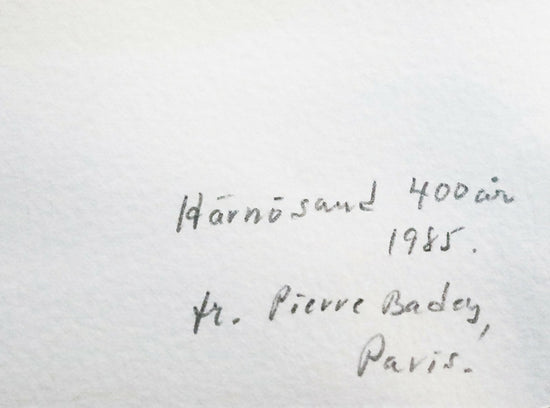 Härnösand 400 år
1985.
tr. Pierre Badey,
Paris.